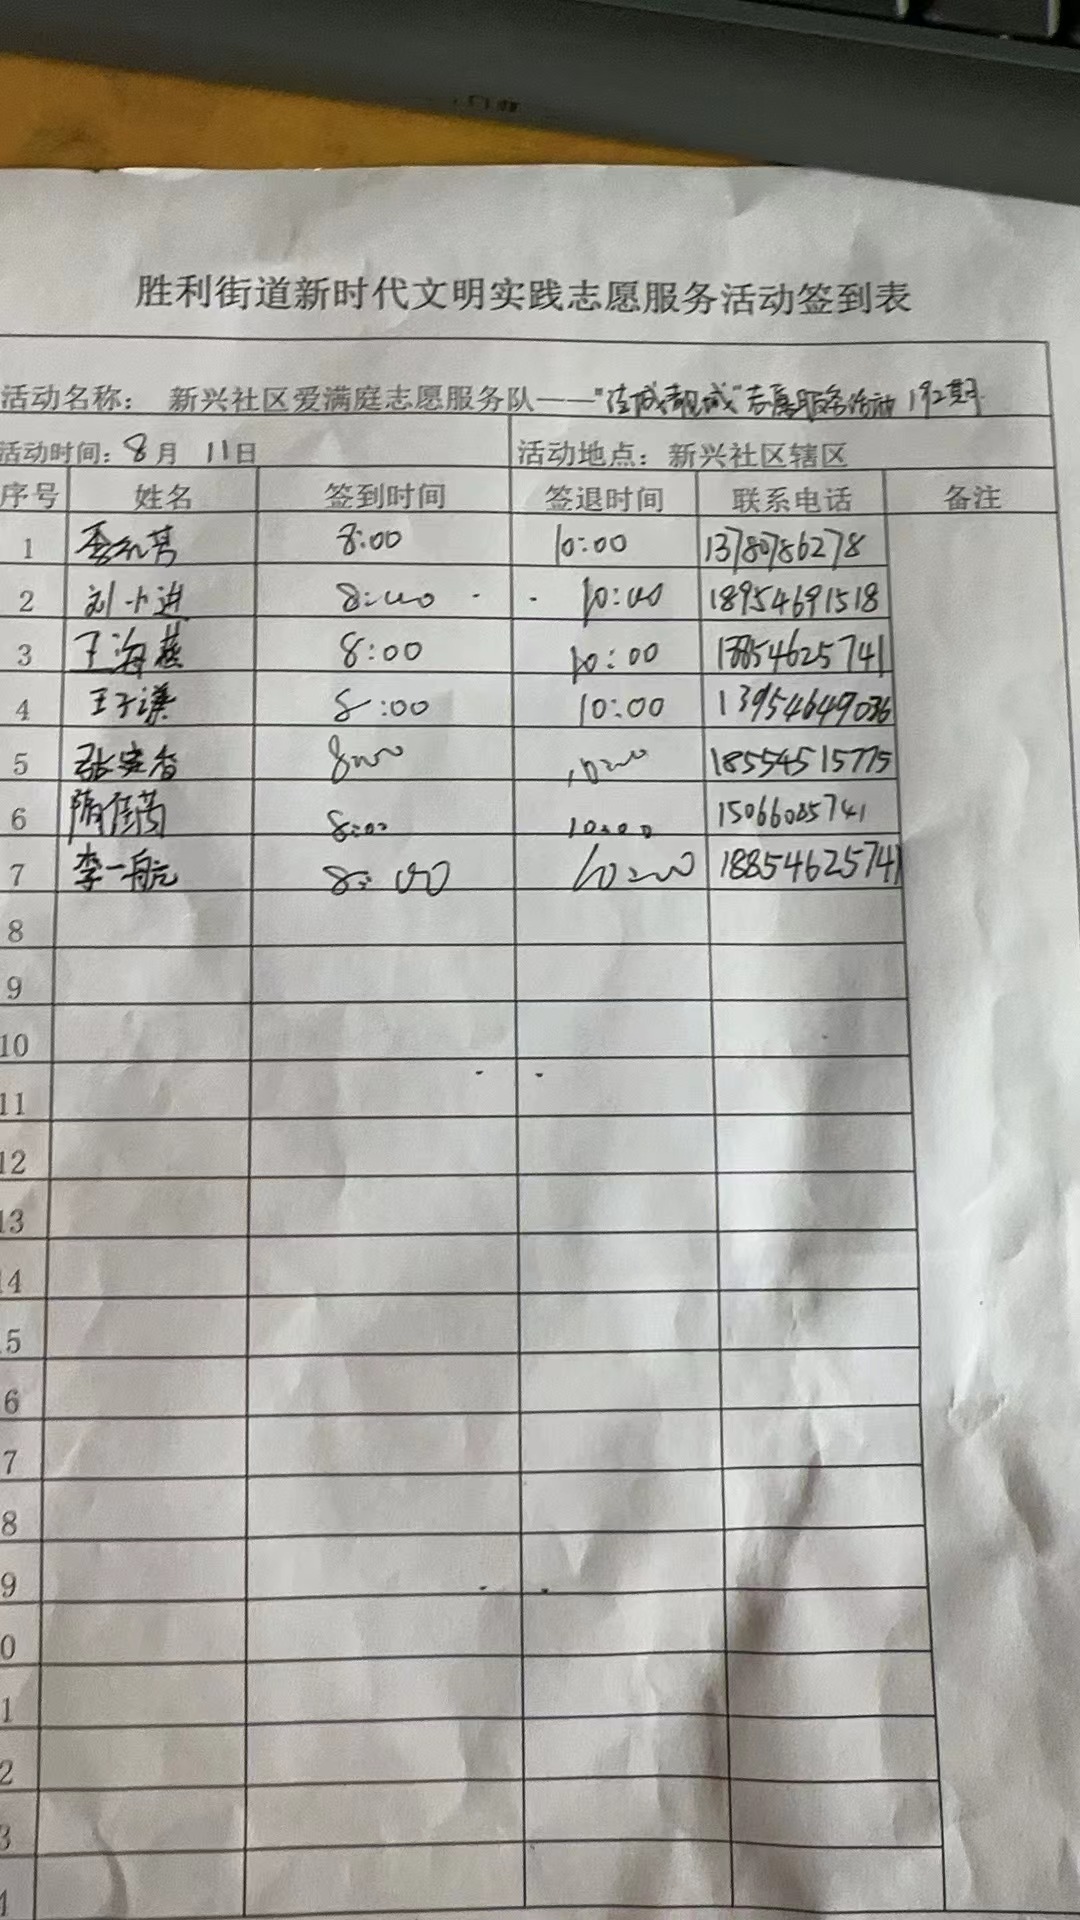 胜利街道新时代文明实践志愿服务活动签到表
活动名称： 新兴社区爱满庭志愿服务队——" 志愿服务活动 192期
活动时间：8月 11日 活动地点：新兴社区辖区
序号 姓名 签到时间 签退时间 联系电话 备注
1 8:00 10:00 13780786278
2 刘小进 8:00 10:00 18954691518
3 王海燕 8:00 10:00 13854625741
4 王子谦 8:00 10:00 13954649036
5 张宝香 8:00 10:00 18554515775
6 隋佳茜 8:00 10:00 15066005741
7 李一航 8:00 10:00 18854625741
8
9
10
11
12
13
4
5
6
7
8
9
0
1
2
3
4